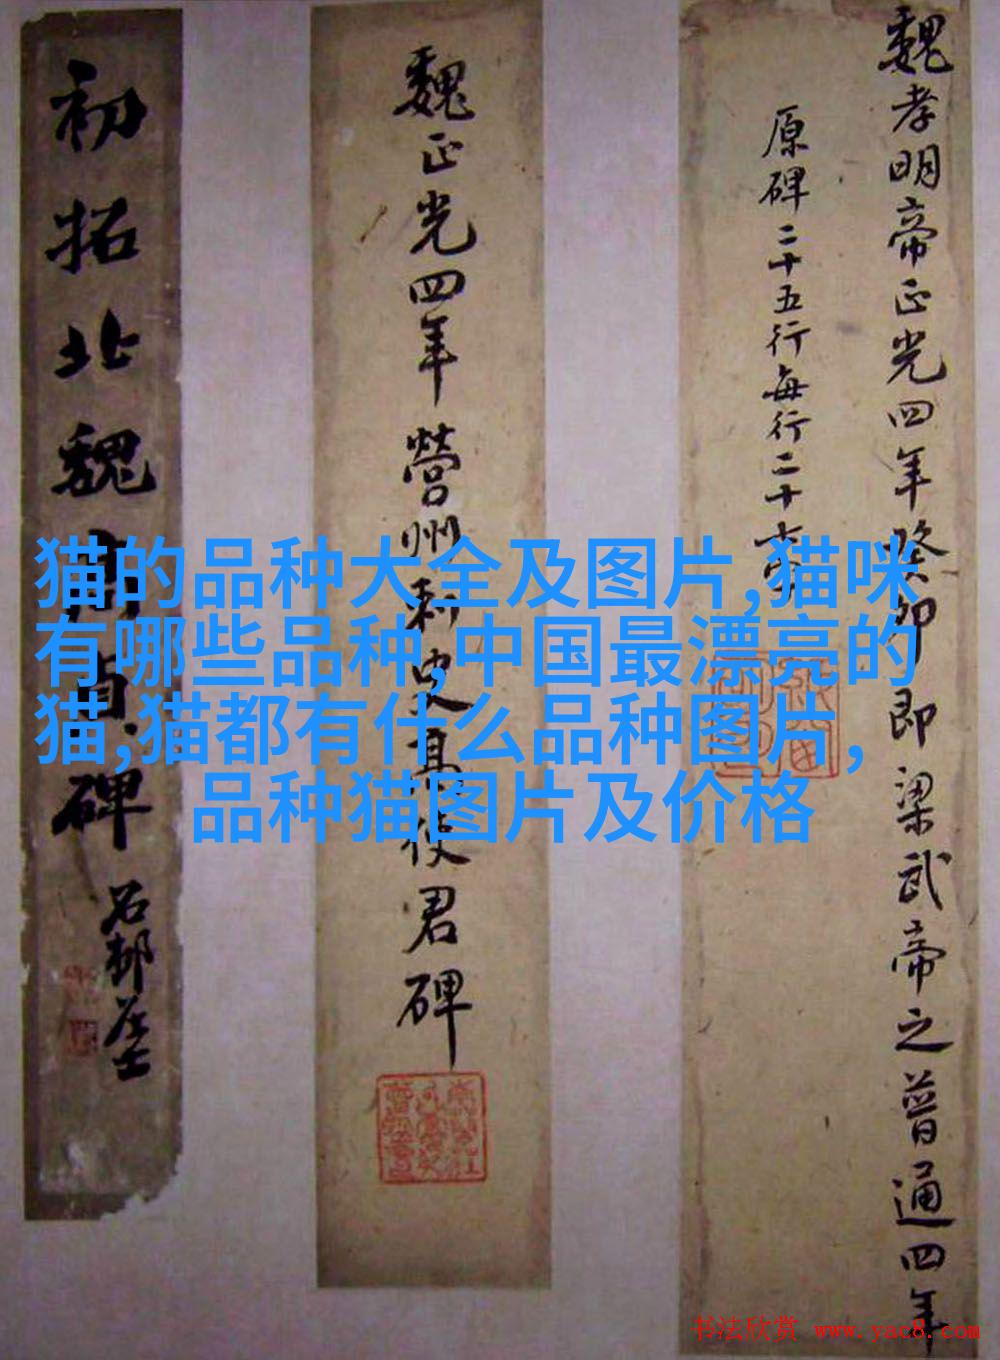 魏孝明帝正光四年癸卯即梁武帝之普通四年
原碑二十五行每行二十六字
魏正光四年營州刺史高使君碑
初拓北魏高貞碑
猫的品种大全及图片,猫咪
有哪些品种,中国最漂亮的
猫,猫都有什么品种图片,
品种猫图片及价格
书法欣赏 www.yac8.com